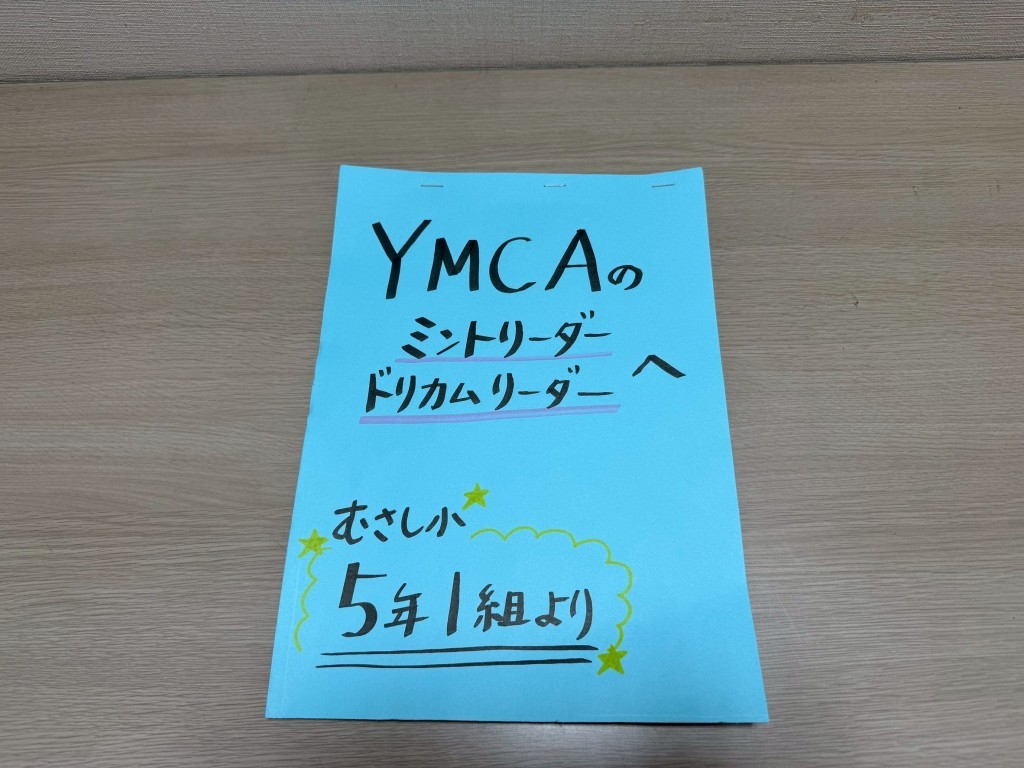 YMCAの
ミントリーダー
ドリカムリーダー へ
むさし小
5年1組より